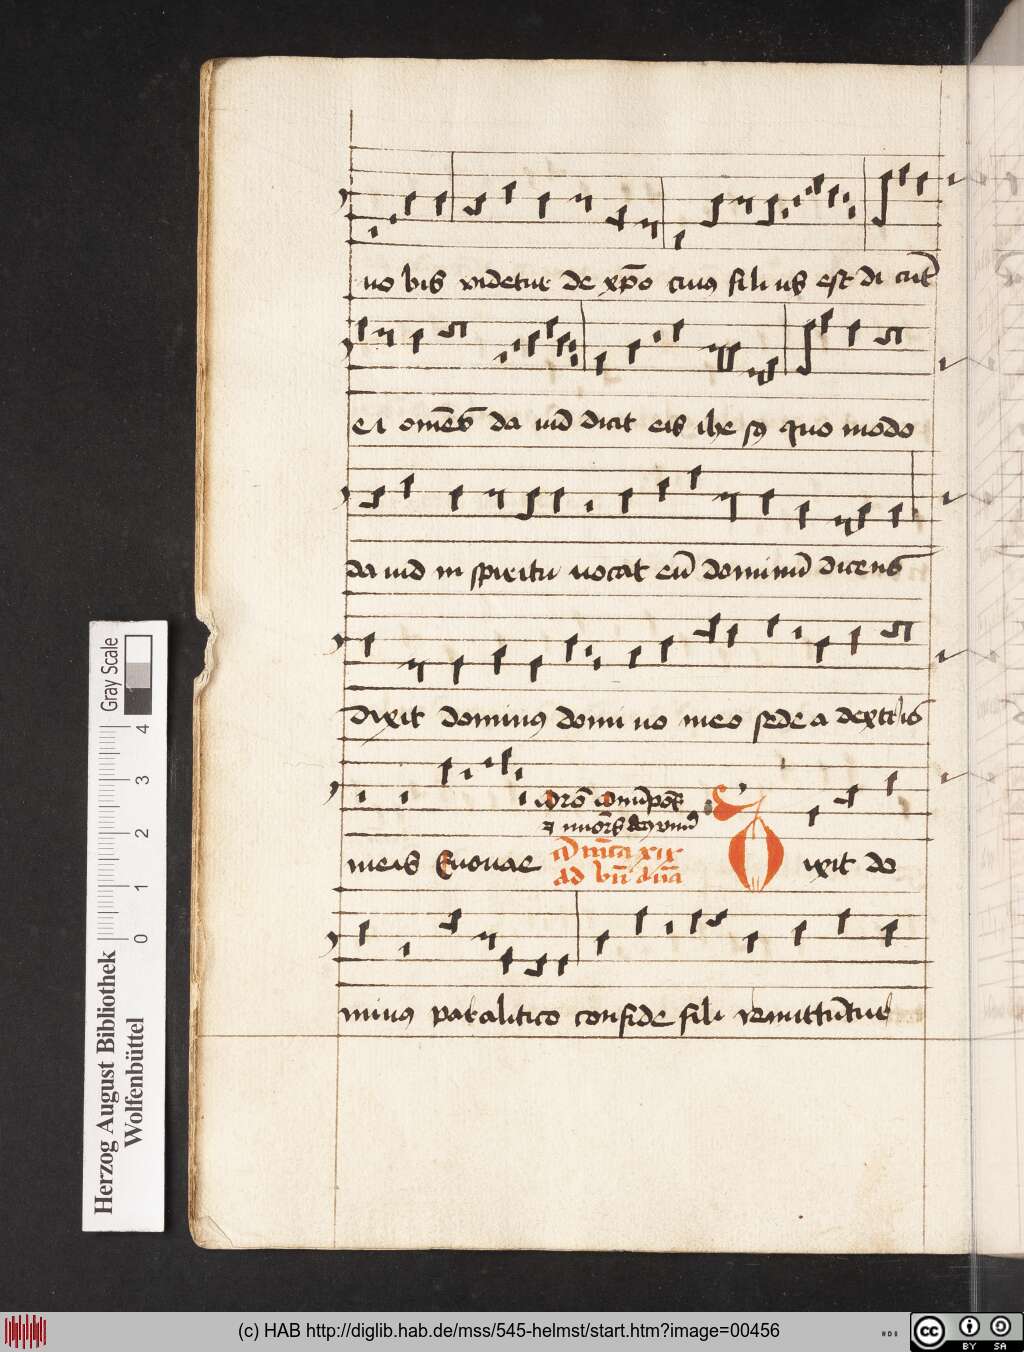 uo bis videtur de xp̄o cuius fili us est di cūt
ei om̄es da uid dicit eis ihe sus quo modo
da uid in spiritu uocat eū dominū dicens
dixit dominus domi no meo sede a dextris
meis Euouae
Dn̄ica xix
ad bn̄
ixit do
minus paralitico confide fili remittūtur
Gray Scale
0 1 2 3 4
Herzog August Bibliothek
Wolfenbüttel
(c) HAB http://diglib.hab.de/mss/545-helmst/start.htm?image=00456
cc BY SA